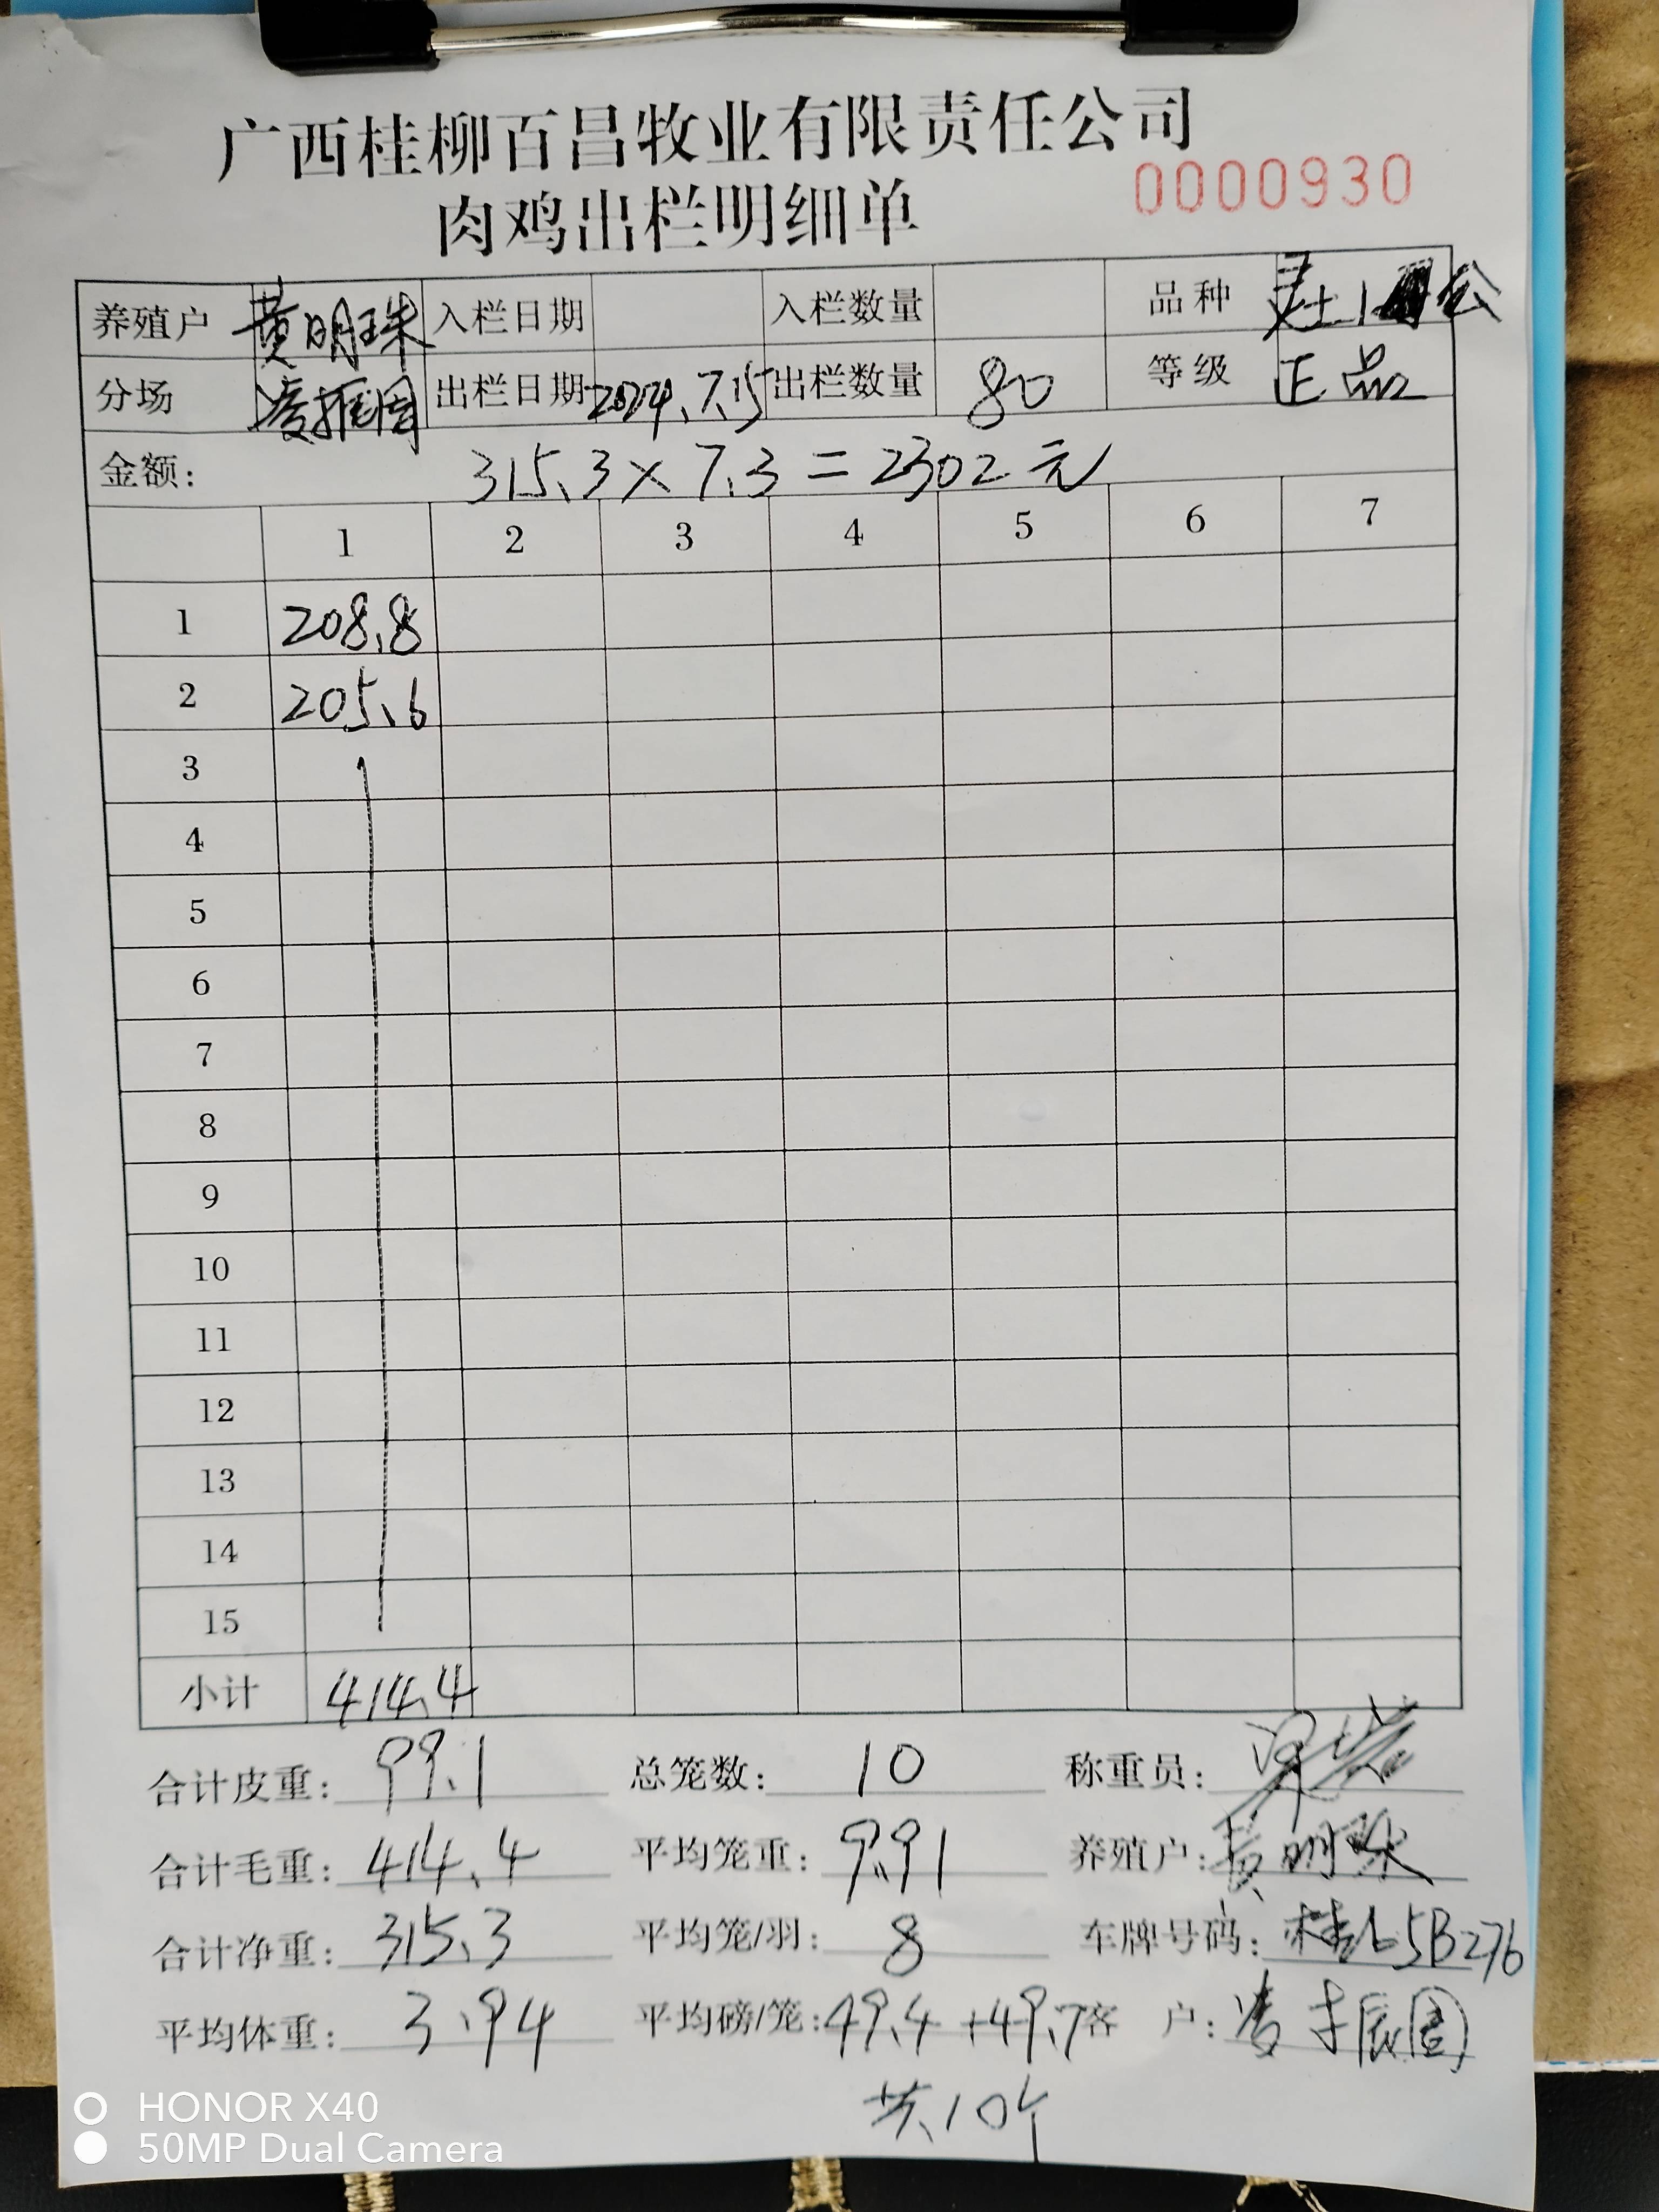 广西桂柳百昌牧业有限责任公司
肉鸡出栏明细单 0000930
养殖户 黄明珠 入栏日期 入栏数量 品种 公
分场 凌振周 出栏日期 2024.7.15 出栏数量 80 等级 正品
金额: 315.3×7.3=2302元
1 2 3 4 5 6 7
1 208.8
2 205.6
3
4
5
6
7
8
9
10
11
12
13
14
15
小计 414.4
合计皮重: 99.1 总笼数: 10 称重员:
合计毛重: 414.4 平均笼重: 9.91 养殖户: 黄明珠
合计净重: 315.3 平均笼/羽: 8 车牌号码: 桂L5B276
平均体重: 3.94 平均磅/笼: 49.4+49.7 客 户:
共10个
HONOR X40
50MP Dual Camera